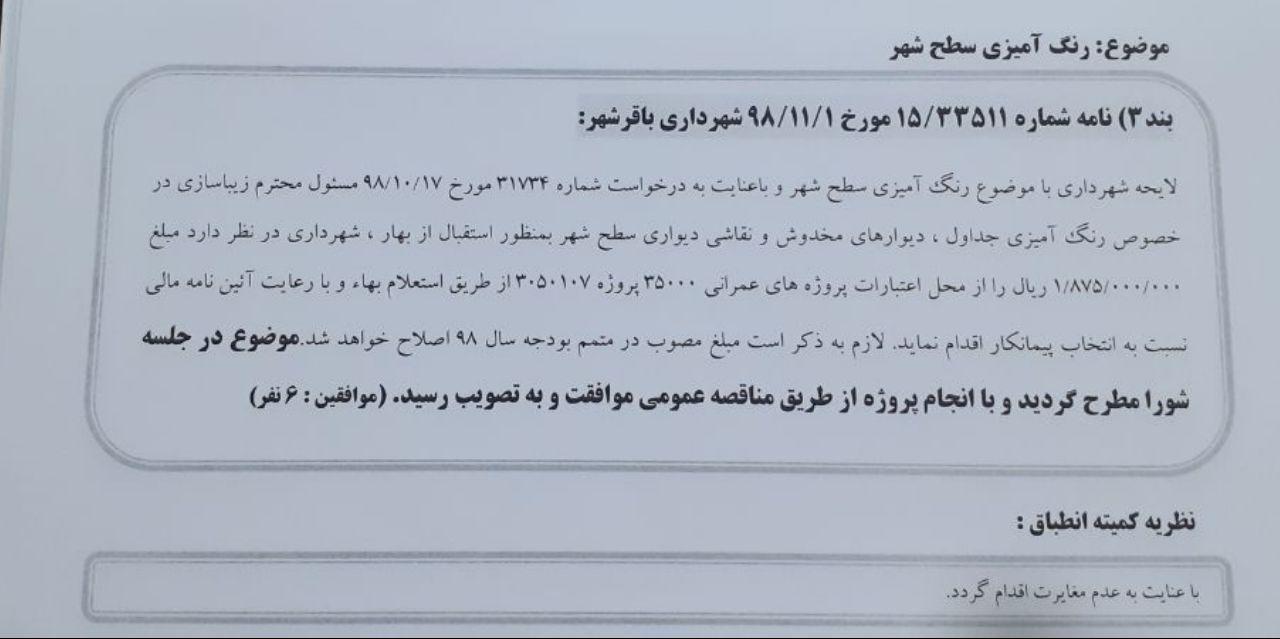 موضوع: رنگ آمیزی سطح شهر
بند ۳) نامه شماره ۱۵/۳۳۵۱۱ مورخ ۹۸/۱۱/۱ شهرداری باقرشهر:
لایحه شهرداری با موضوع رنگ آمیزی سطح شهر و باعنایت به درخواست شماره ۳۱۷۳۴ مورخ ۹۸/۱۰/۱۷ مسئول محترم زیباسازی در
خصوص رنگ آمیزی جداول ، دیوارهای مخدوش و نقاشی دیواری سطح شهر بمنظور استقبال از بهار ، شهرداری در نظر دارد مبلغ
۱/۸۷۵/۰۰۰/۰۰۰ ریال را از محل اعتبارات پروژه های عمرانی ۳۵۰۰۰ پروژه ۳۰۵۰۱۰۷ از طریق استعلام بهاء و با رعایت آئین نامه مالی
نسبت به انتخاب پیمانکار اقدام نماید. لازم به ذکر است مبلغ مصوب در متمم بودجه سال ۹۸ اصلاح خواهد شد.موضوع در جلسه
شورا مطرح گردید و با انجام پروژه از طریق مناقصه عمومی موافقت و به تصویب رسید. (موافقین : ۶ نفر)
نظریه کمیته انطباق :
با عنایت به عدم مغایرت اقدام گردد.